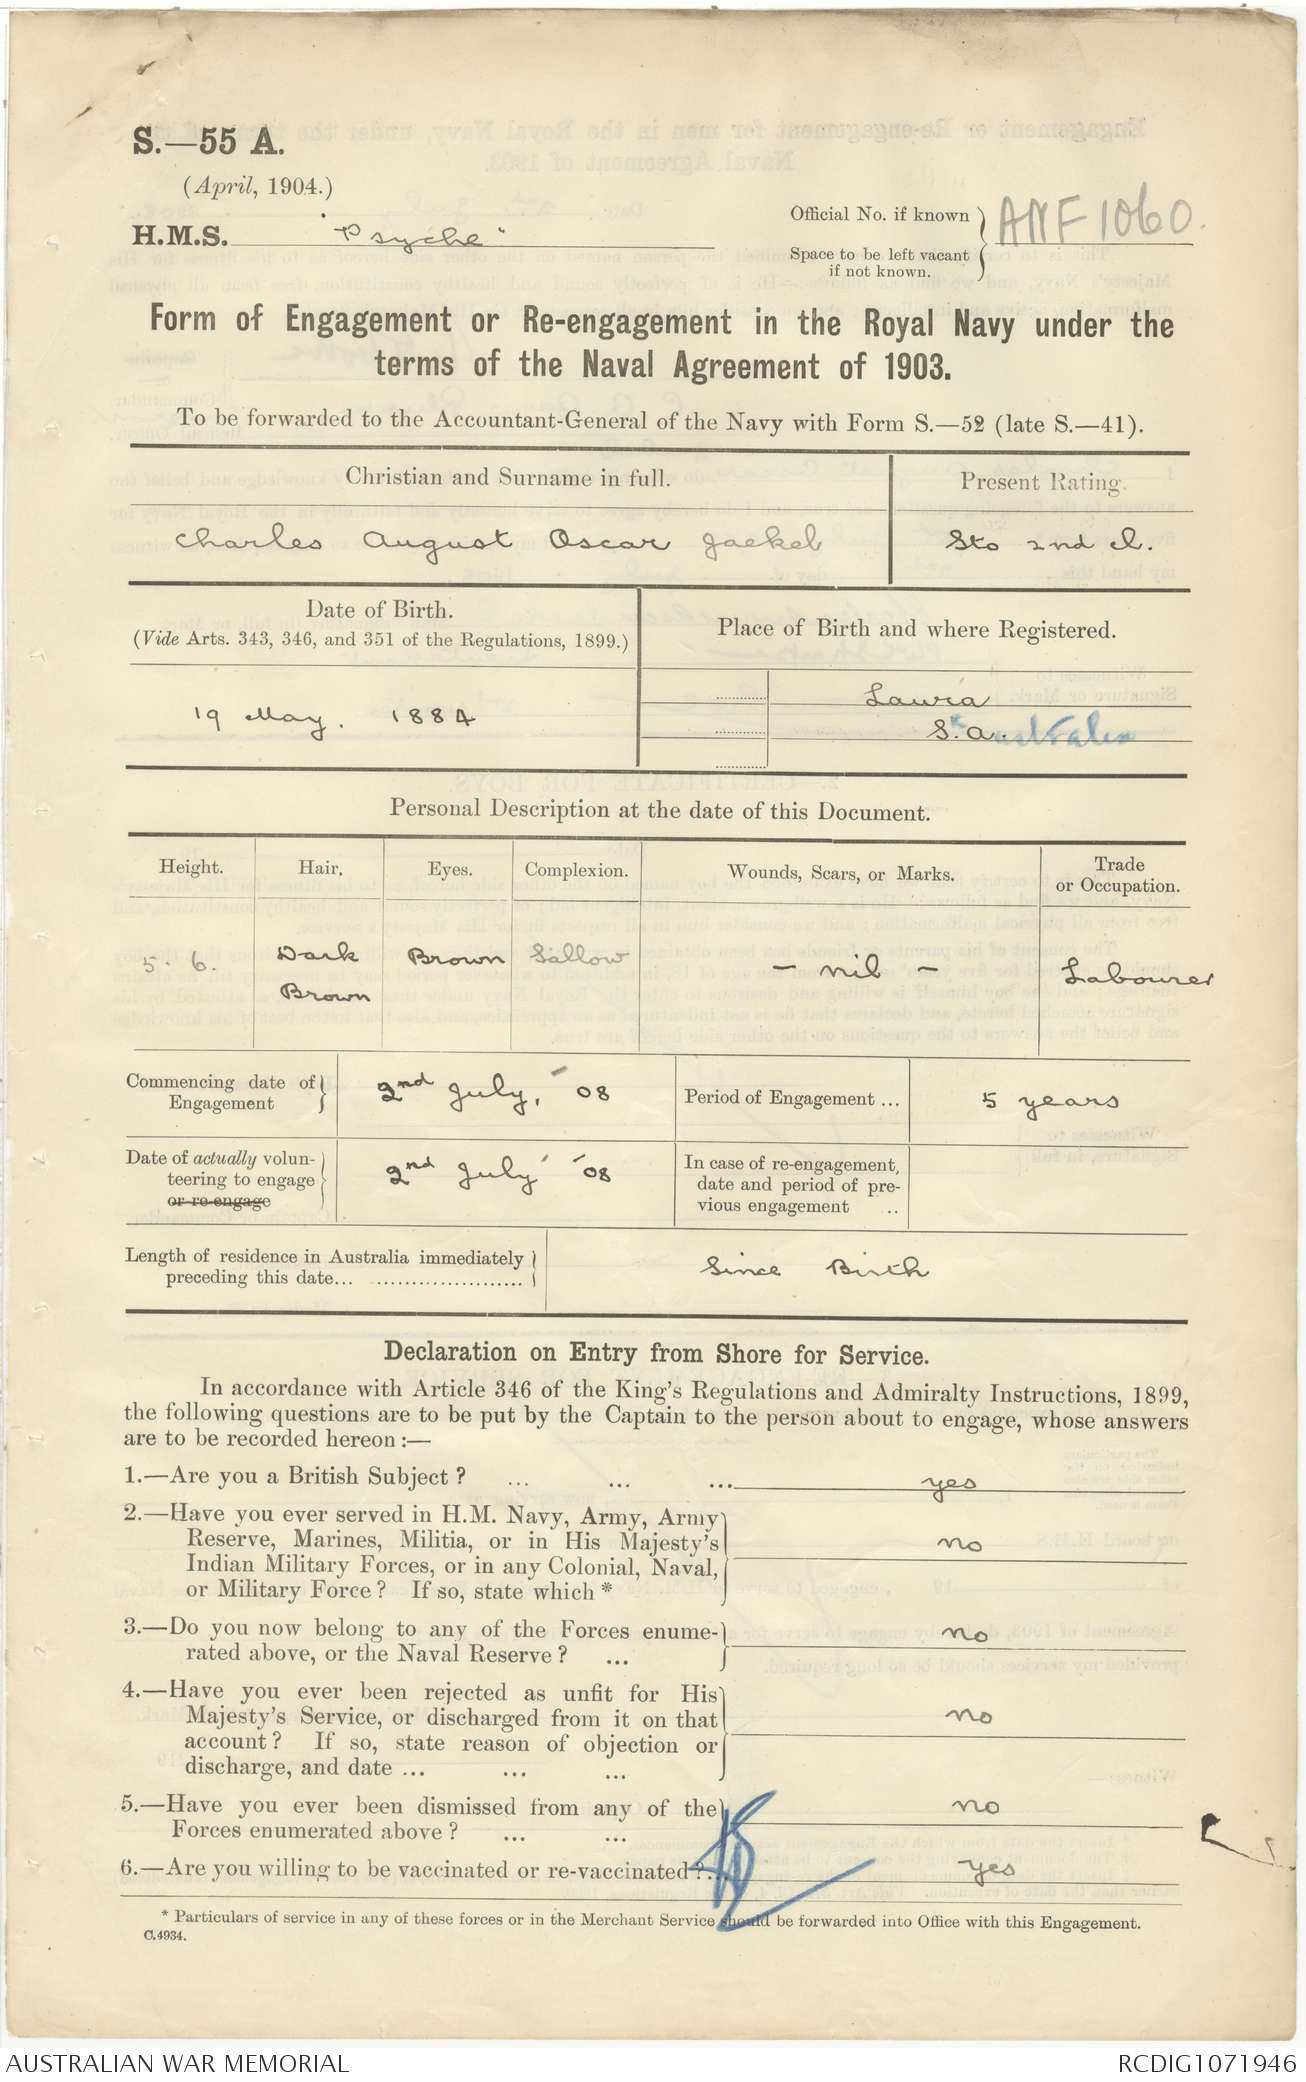 S.—55 A.
(April, 1904.)
H.M.S. "Psyche"
Official No. if known
Space to be left vacant
if not known.
ANF 1060.
Form of Engagement or Re-engagement in the Royal Navy under the
terms of the Naval Agreement of 1903.
To be forwarded to the Accountant-General of the Navy with Form S.—52 (late S.—41).
Christian and Surname in full.
Present Rating.
Charles August Oscar Jaekel
Sto 2nd Cl.
Date of Birth.
(Vide Arts. 343, 346, and 351 of the Regulations, 1899.)
Place of Birth and where Registered.
19 May. 1884
Laura
S. Australia
Personal Description at the date of this Document.
Height.
Hair.
Eyes.
Complexion.
Wounds, Scars, or Marks.
Trade
or Occupation.
5. 6.
Dark
Brown
Brown
Sallow
- nil -
Labourer
Commencing date of
Engagement
2nd July, '08
Period of Engagement ...
5 years
Date of actually volun-
teering to engage
or re-engage
2nd July '08
In case of re-engagement,
date and period of pre-
vious engagement ..
Length of residence in Australia immediately
preceding this date... ........................
Since Birth
Declaration on Entry from Shore for Service.
In accordance with Article 346 of the King's Regulations and Admiralty Instructions, 1899,
the following questions are to be put by the Captain to the person about to engage, whose answers
are to be recorded hereon :—
1.—Are you a British Subject ? ... ... ... yes
2.—Have you ever served in H.M. Navy, Army, Army
Reserve, Marines, Militia, or in His Majesty's
Indian Military Forces, or in any Colonial, Naval,
or Military Force ? If so, state which *
no
3.—Do you now belong to any of the Forces enume-
rated above, or the Naval Reserve ? ...
no
4.—Have you ever been rejected as unfit for His
Majesty's Service, or discharged from it on that
account ? If so, state reason of objection or
discharge, and date ... ... ...
no
5.—Have you ever been dismissed from any of the
Forces enumerated above ? ... ...
no
6.—Are you willing to be vaccinated or re-vaccinated ?... yes
* Particulars of service in any of these forces or in the Merchant Service should be forwarded into Office with this Engagement.
C.4934.
AUSTRALIAN WAR MEMORIAL
RCDIG1071946